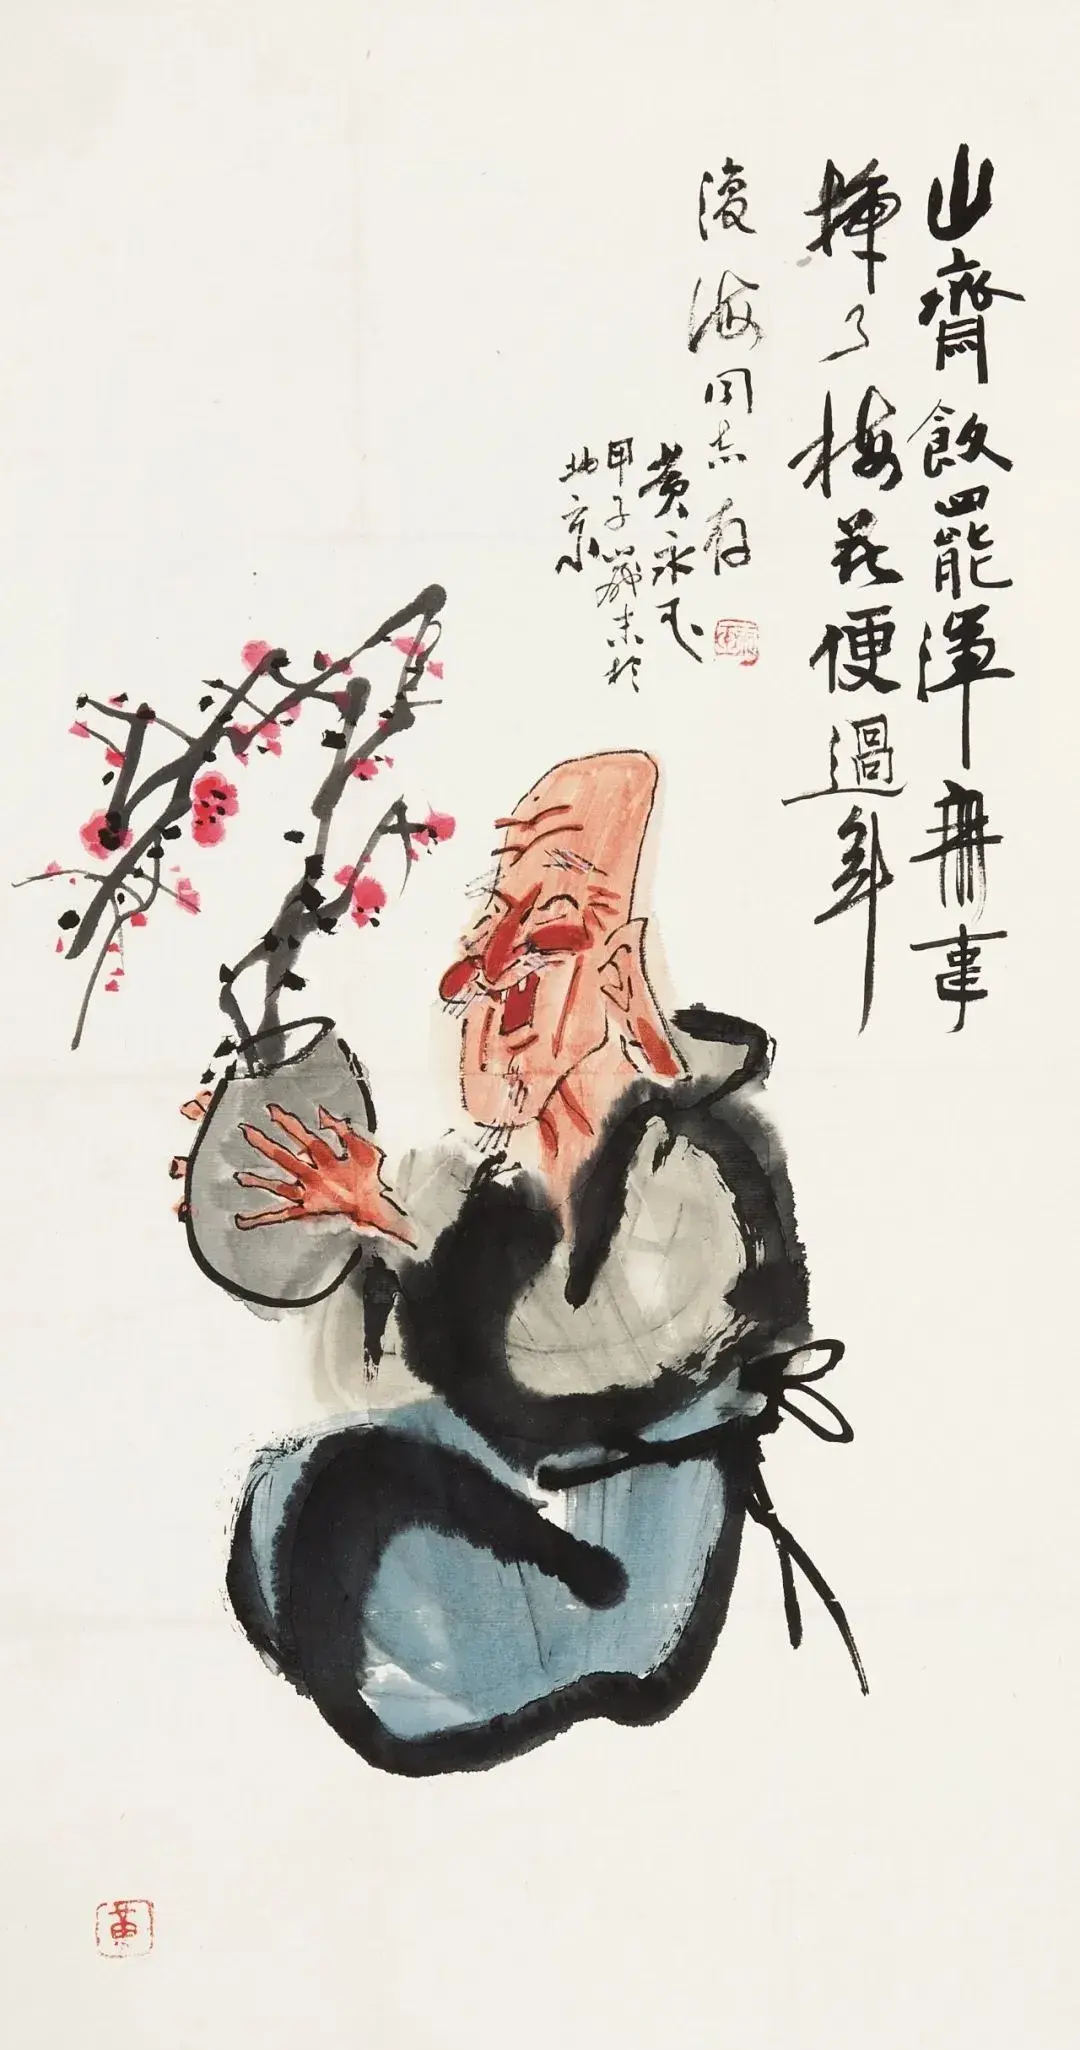 山齋飲罷渾無事
挿了梅花便過年
復海同志存
黄永玉
甲子歲末於
北京
黃